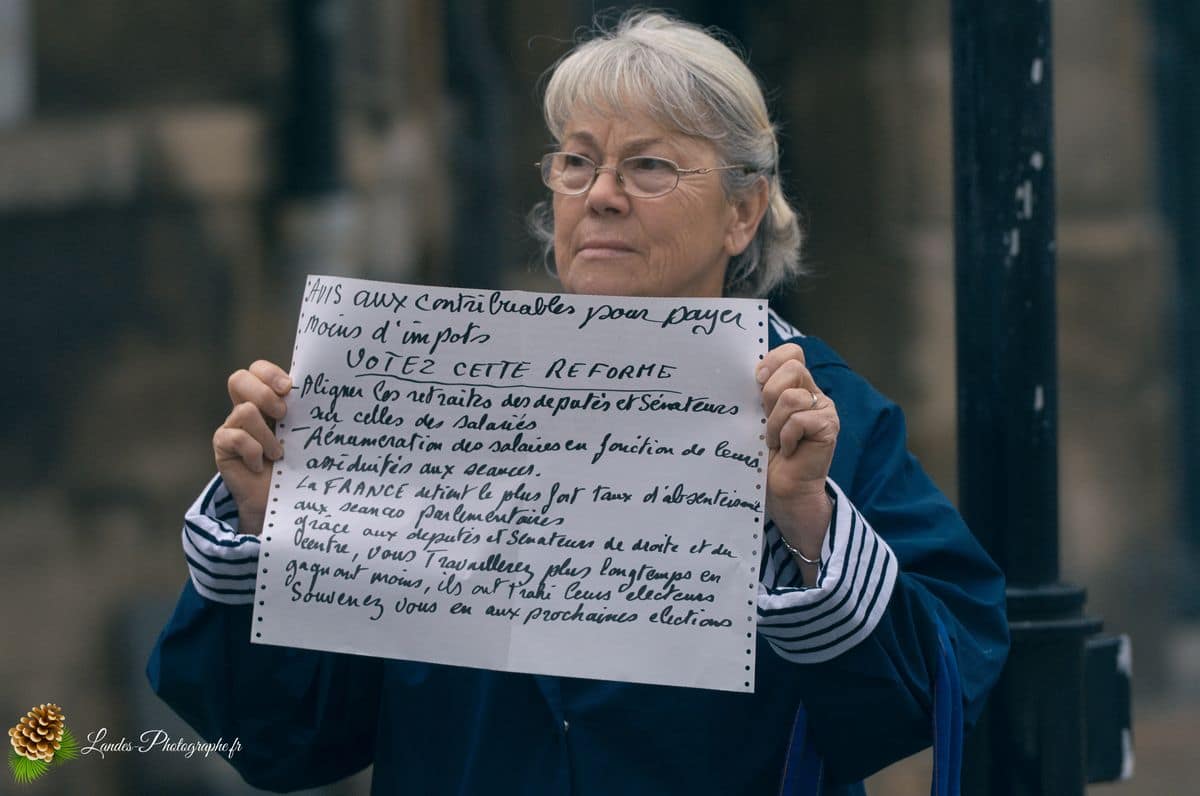 AVIS aux contribuables pour payer
moins d'impots
VOTEZ CETTE REFORME
-Aligner les retraites des deputés et Sénateurs
sur celles des salariés
-Rénumeration des salaires en fonction de leurs
assiduités aux seances.
La FRANCE detient le plus fort taux d'absenteisme
aux seances parlementaires
grace aux deputés et Sénateurs de droite et du
centre, vous Travaillerez plus longtemps en
gagnant moins, ils ont trahi leurs electeurs
Souvenez vous en aux prochaines elections
Landes-Photographe.fr